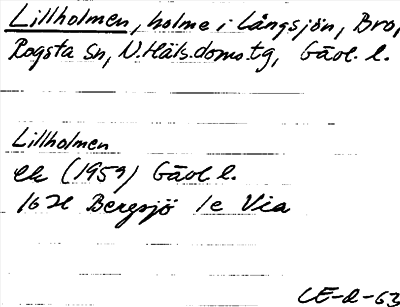 Lillholmen, holme i Långsjön, Bro,
Rogsta sn, N. Häls. doms. tg, Gävl. l.
Lillholmen
ek (1959) Gävl l.
16H Bergsjö 1e Via
CE-a-63